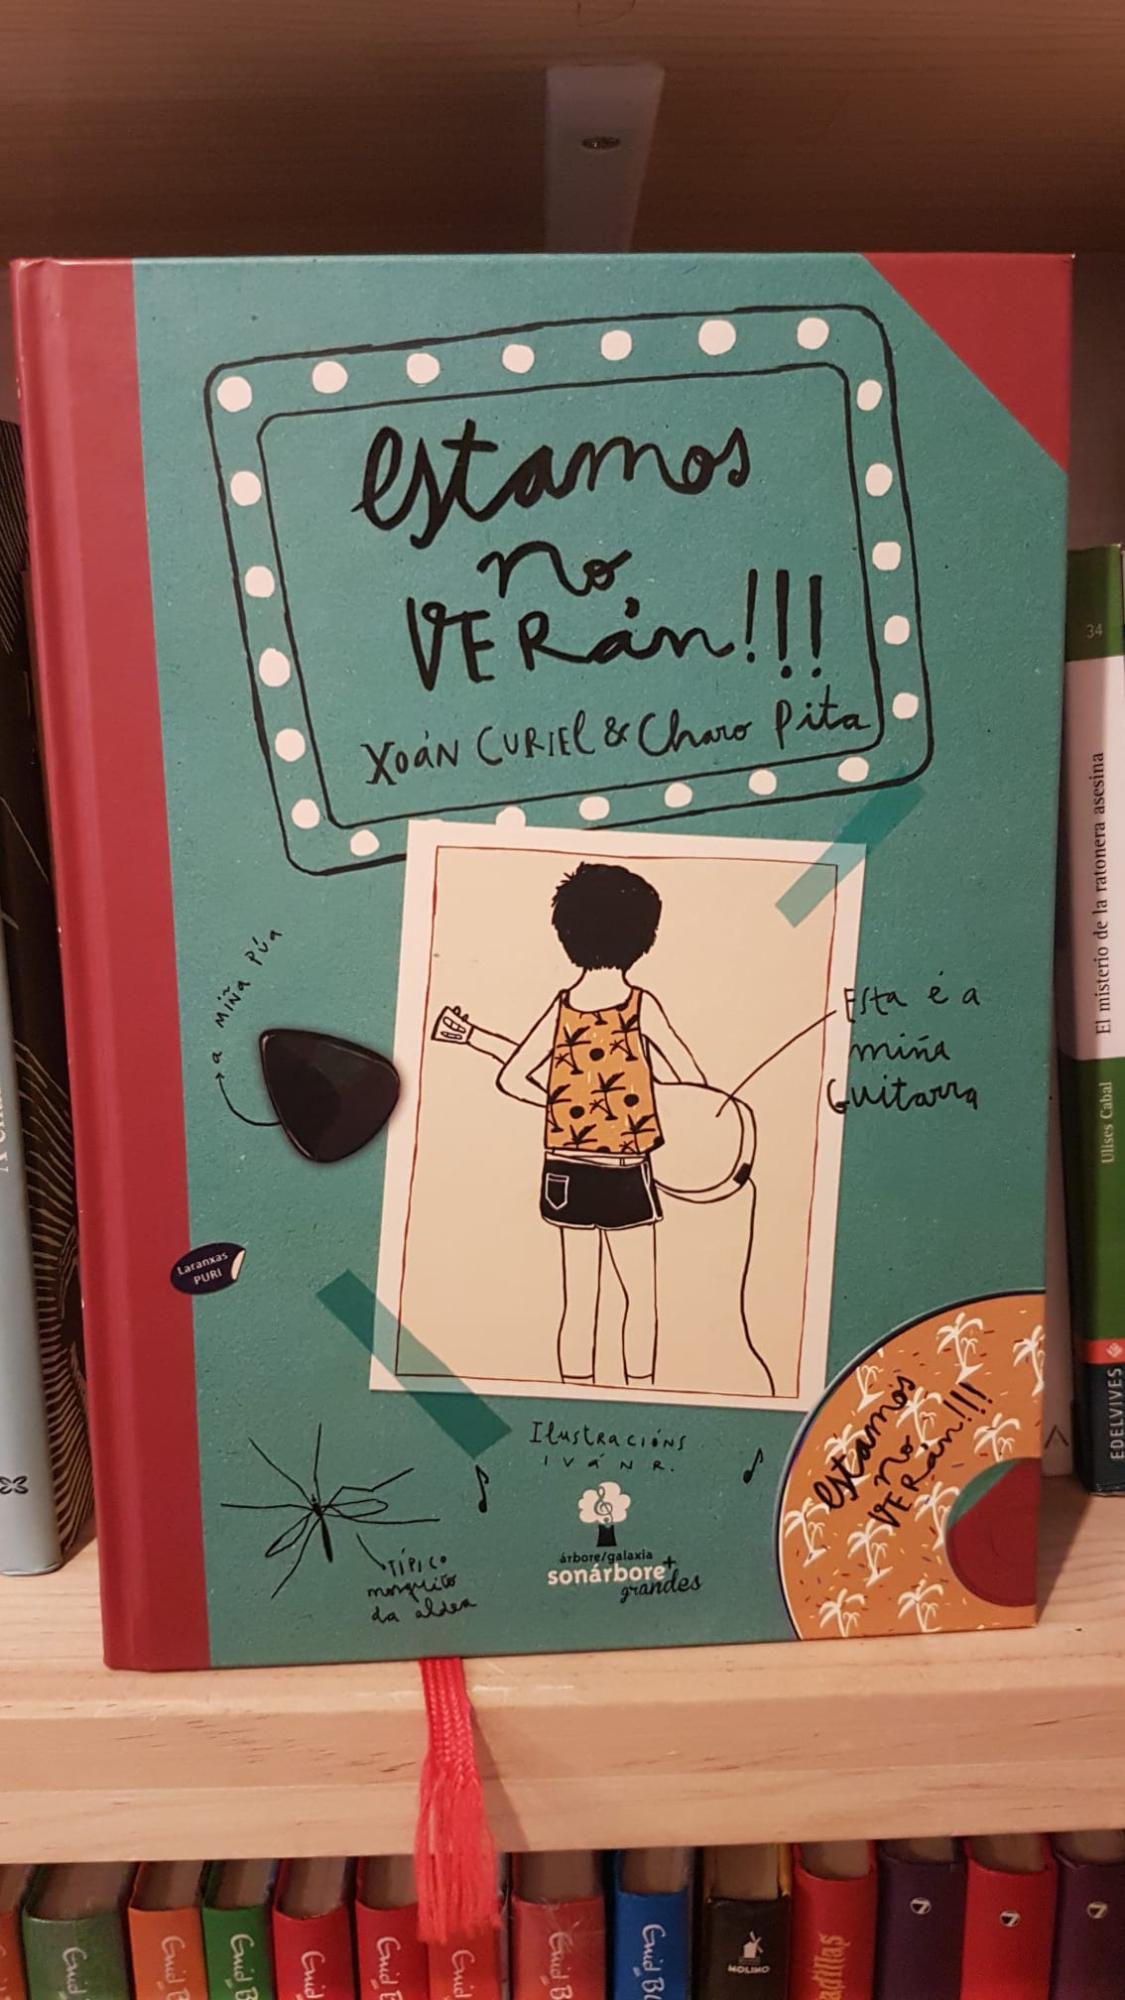 Estamos
no
VERán!!!
XOÁN CURIEL & Charo Pita
a miña púa
Esta é a
miña
Guitarra
Laranxas
PURI
Ilustracións
IVÁN R.
TÍPICO
mosquito
da aldea
árbore/galaxia
sonárbore+
grandes
Estamos
no
VERán!!!
34
El misterio de la ratonera asesina
Ulises Cabal
EDELVIVES
Enid
Enid B
Enid B
Enid B
Enid B
Enid
Enid B
Enid B
MOLINO
adillas
7
7
7